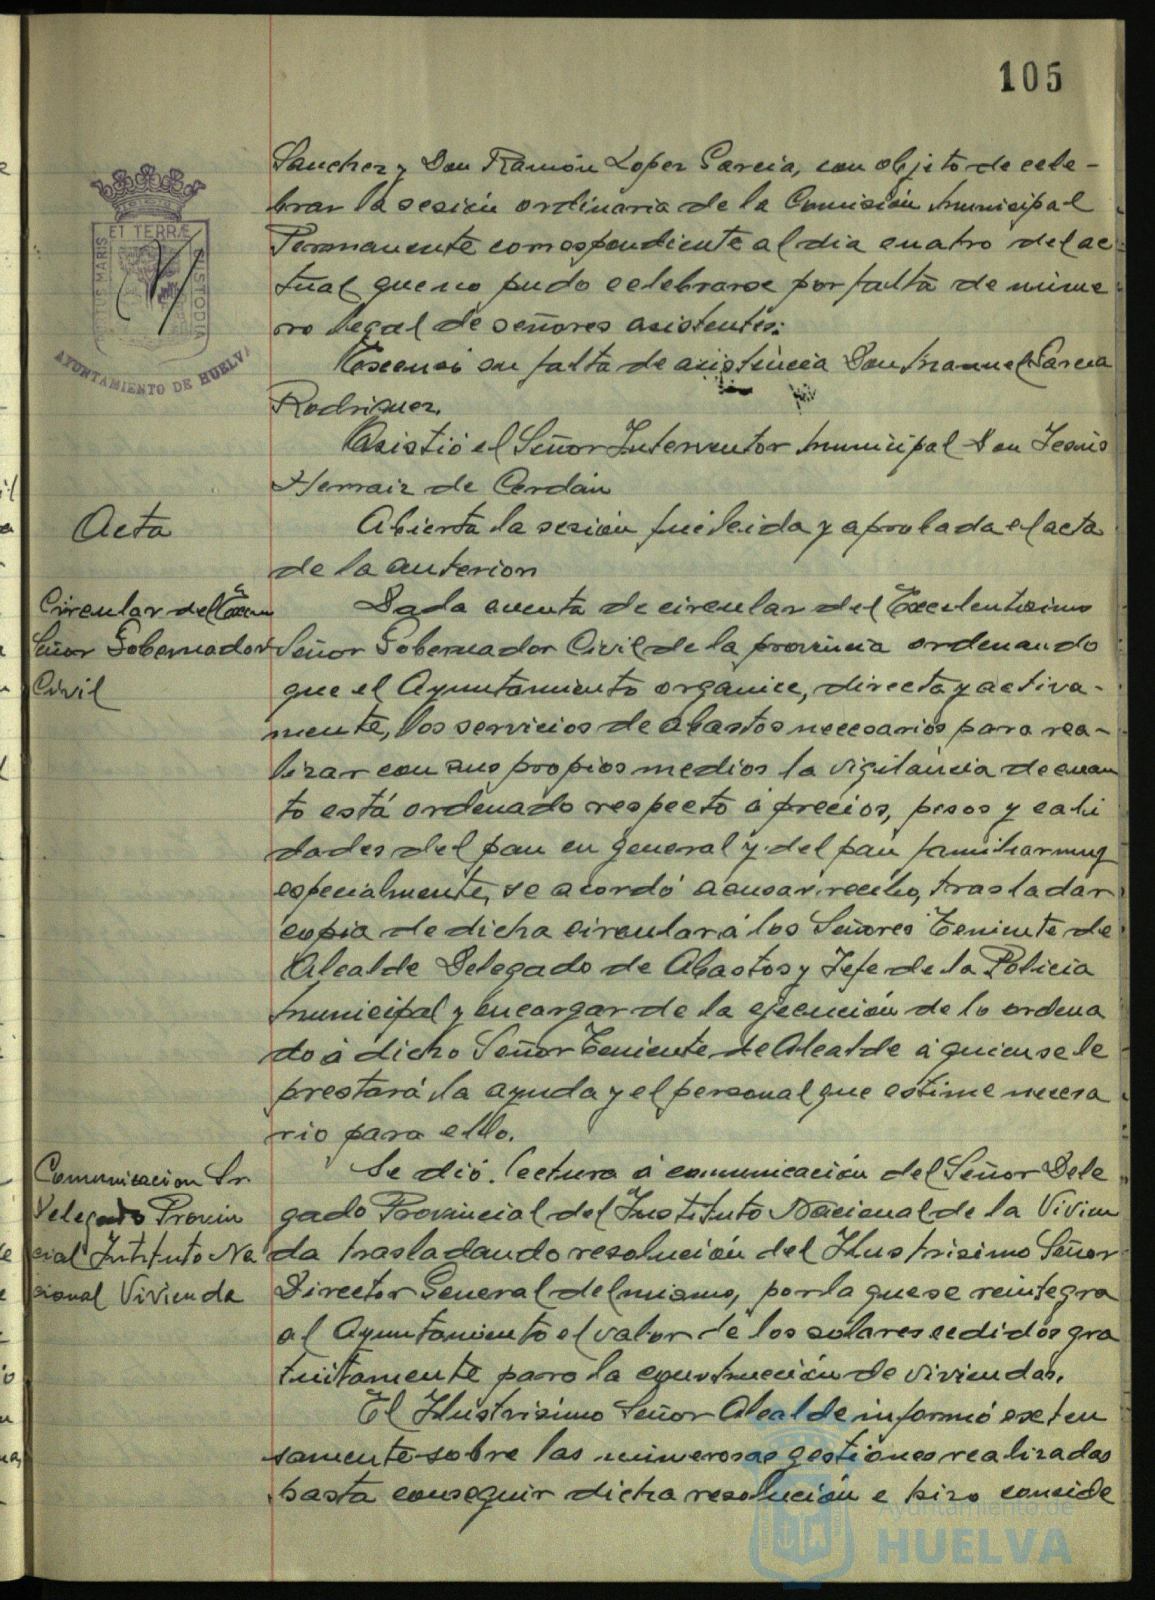 105
Sanchez y Don Ramón Lopez Garcia, con objeto de cele-
brar la sesión ordinaria de la Comisión Municipal
Permanente correspondiente al dia cuatro del ac
tual que no pudo celebrarse por falta de núme
ro legal de señores asistentes.
Excusó su falta de asistencia Don Manuel Garcia
Rodriguez.
Asistió el Señor Interventor Municipal Don Jesús
Herraiz de Cerdán
Acta
Abierta la sesión fué leida y aprobada el acta
de la anterior
Circular del Excmo
Señor Gobernador
Civil
Dada cuenta de circular del Excelentisimo
Señor Gobernador Civil de la provincia ordenando
que el Ayuntamiento organice, directa y activa-
mente, los servicios de abastos necesarios para rea-
lizar con sus propios medios la vigilancia de cuan
to está ordenado respecto á precios, pesos y cali
dades del pan en general y del pan familiar muy
especialmente, se acordó acusar recibo, trasladar
copia de dicha circular á los Señores Teniente de
Alcalde Delegado de Abastos y Jefe de la Policia
Municipal y encargar de la ejecución de lo ordena
do á dicho Señor Teniente de Alcalde á quien se le
prestará la ayuda y el personal que estime necesa
rio para ello.
Comunicacion Sr.
Delegado Provin
cial Instituto Na
cional Vivienda
Se dió lectura á comunicación del Señor Dele
gado Provincial del Instituto Nacional de la Vivien
da trasladando resolución del Ilustrisimo Señor
Director General del mismo, por la que se reintegra
al Ayuntamiento el valor de los solares cedidos gra
tuitamente para la construcción de viviendas.
El Ilustrisimo Señor Alcalde informó exten
samente sobre las numerosas gestiones realizadas
hasta conseguir dicha resolución e hizo conside
ET TERRÆ
CUSTODIA
AYUNTAMIENTO DE HUELVA
Ayuntamiento de
HUELVA